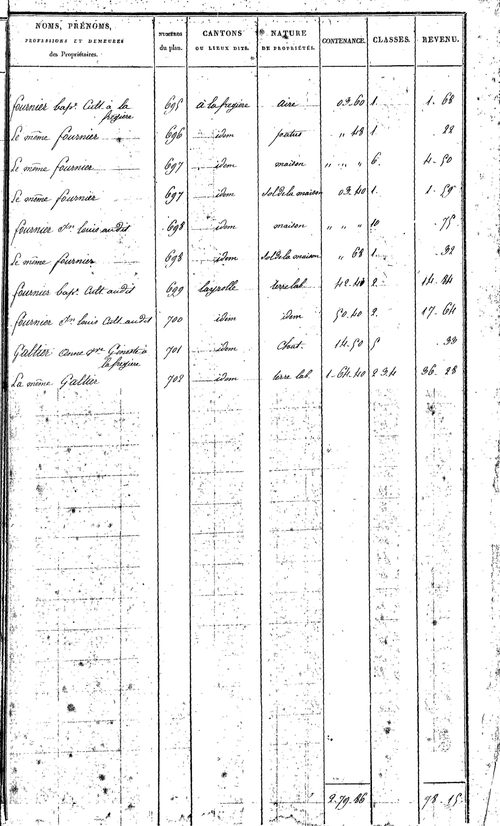 NOMS, PRÉNOMS, PROFESSIONS ET DEMEURES des Propriétaires. | NUMÉROS du plan. | CANTONS OU LIEUX DITS. | NATURE DE PROPRIÉTÉS. | CONTENANCE. | CLASSES. | REVENU.
fournier bapt. Cult. à la | 695 | à la freyière | aire | 03. 60 | 1. | 1. 68
freyière
Le même fournier | 696 | idem | patus | " 48 | 1 | 22
Le même fournier | 697 | idem | maison | " " " | 6. | 4. 50
Le même fournier | 697 | idem | Sol de la maison | 03. 40 | 1. | 1. 59
fournier louis audit | 698 | idem | maison | " " " | 10 | . 75
Le même fournier | 698 | idem | Sol de la maison | " 68 | 1 | . 32
fournier bapt. Cult. audit | 699 | Layrolle | terre lab. | 42. 40 | 2. | 14. 84
fournier louis Cult. audit | 700 | idem | idem | 50. 40 | 2. | 17. 64
Galtier anne à | 701 | idem | Chat. | 14. 50 | 5 | . 33
la freyière
La même Galtier | 702 | idem | terre lab. | 1. 64. 40 | 2 3 4 | 36. 28
2. 79. 86 | 78. 15.